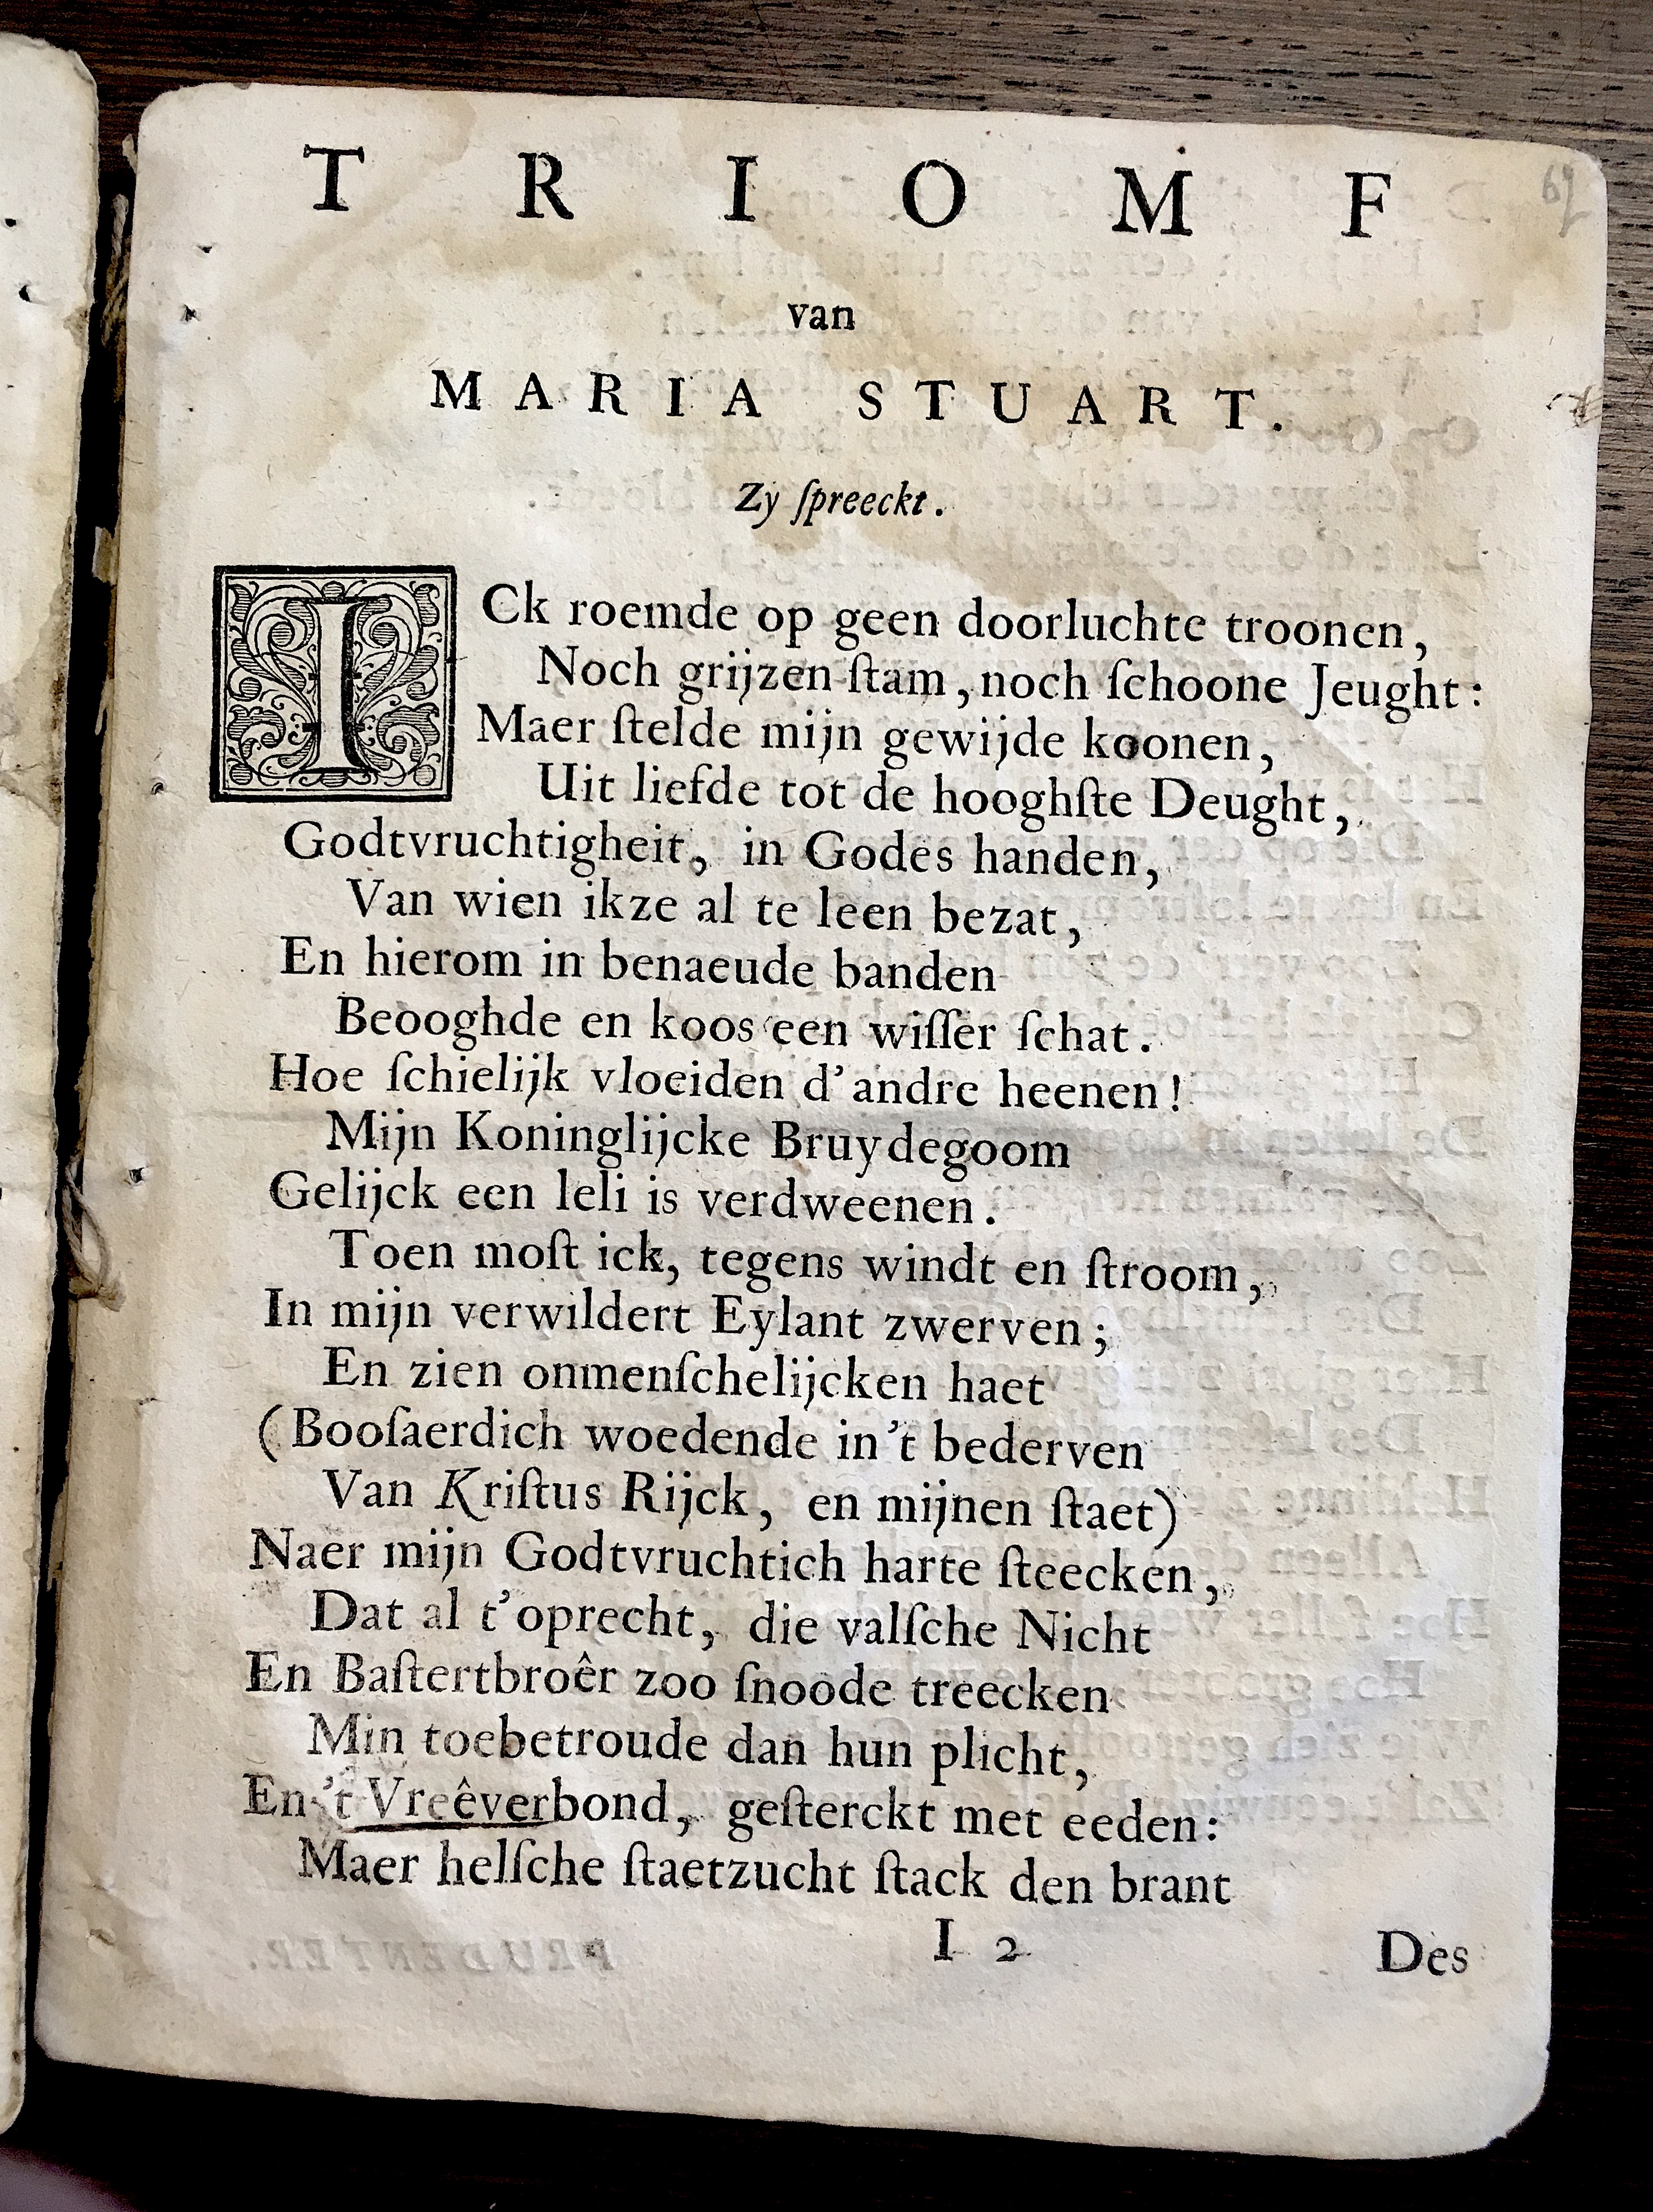 TRIOMF
van
MARIA STUART.
Zy ſpreeckt.
ICk roemde op geen doorluchte troonen,
Noch grijzen ſtam, noch ſchoone Jeught:
Maer ſtelde mijn gewijde koonen,
Uit liefde tot de hooghſte Deught,
Godtvruchtigheit, in Godes handen,
Van wien ikze al te leen bezat,
En hierom in benaeude banden
Beooghde en koos een wiſſer ſchat.
Hoe ſchielijk vloeiden d'andre heenen!
Mijn Koninglijcke Bruydegoom
Gelijck een leli is verdweenen.
Toen moſt ick, tegens windt en ſtroom,
In mijn verwildert Eylant zwerven;
En zien onmenſchelijcken haet
(Booſaerdich woedende in't bederven
Van Kriſtus Rijck, en mijnen ſtaet)
Naer mijn Godtvruchtich harte ſteecken,
Dat al t'oprecht, die valſche Nicht
En Baſtertbroêr zoo ſnoode treecken
Min toebetroude dan hun plicht,
En 't Vreêverbond, geſterckt met eeden:
Maer helſche ſtaetzucht ſtack den brant
I 2
Des